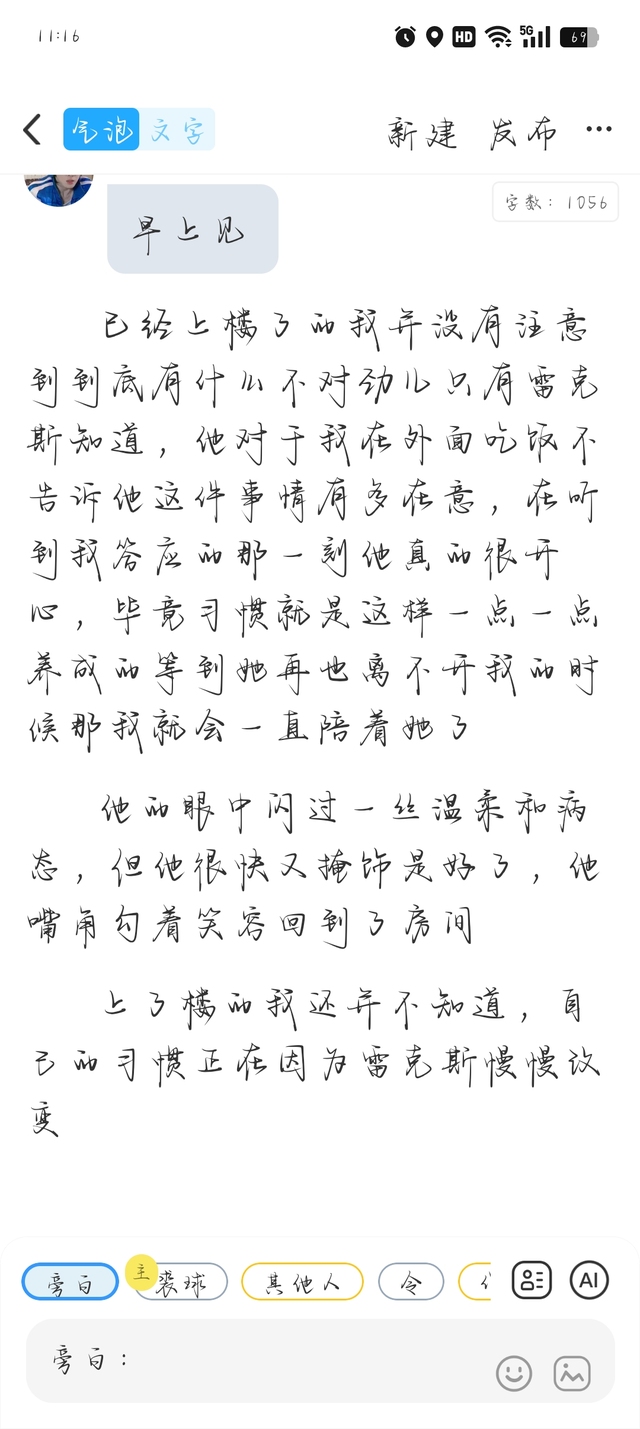 11:16
HD
5G
69
气泡 文字
新建 发布
字数：1056
早上见
已经上楼了的我并没有注意
到到底有什么不对劲儿只有雷克
斯知道，他对于我在外面吃饭不
告诉他这件事情有多在意，在听
到我答应的那一刻他真的很开
心，毕竟习惯就是这样一点一点
养成的等到她再也离不开我的时
候那我就会一直陪着她了
他的眼中闪过一丝温柔和病
态，但他很快又掩饰是好了，他
嘴角勾着笑容回到了房间
上了楼的我还并不知道，自
己的习惯正在因为雷克斯慢慢改
变
旁白
主
裘球
其他人
令
AI
旁白：